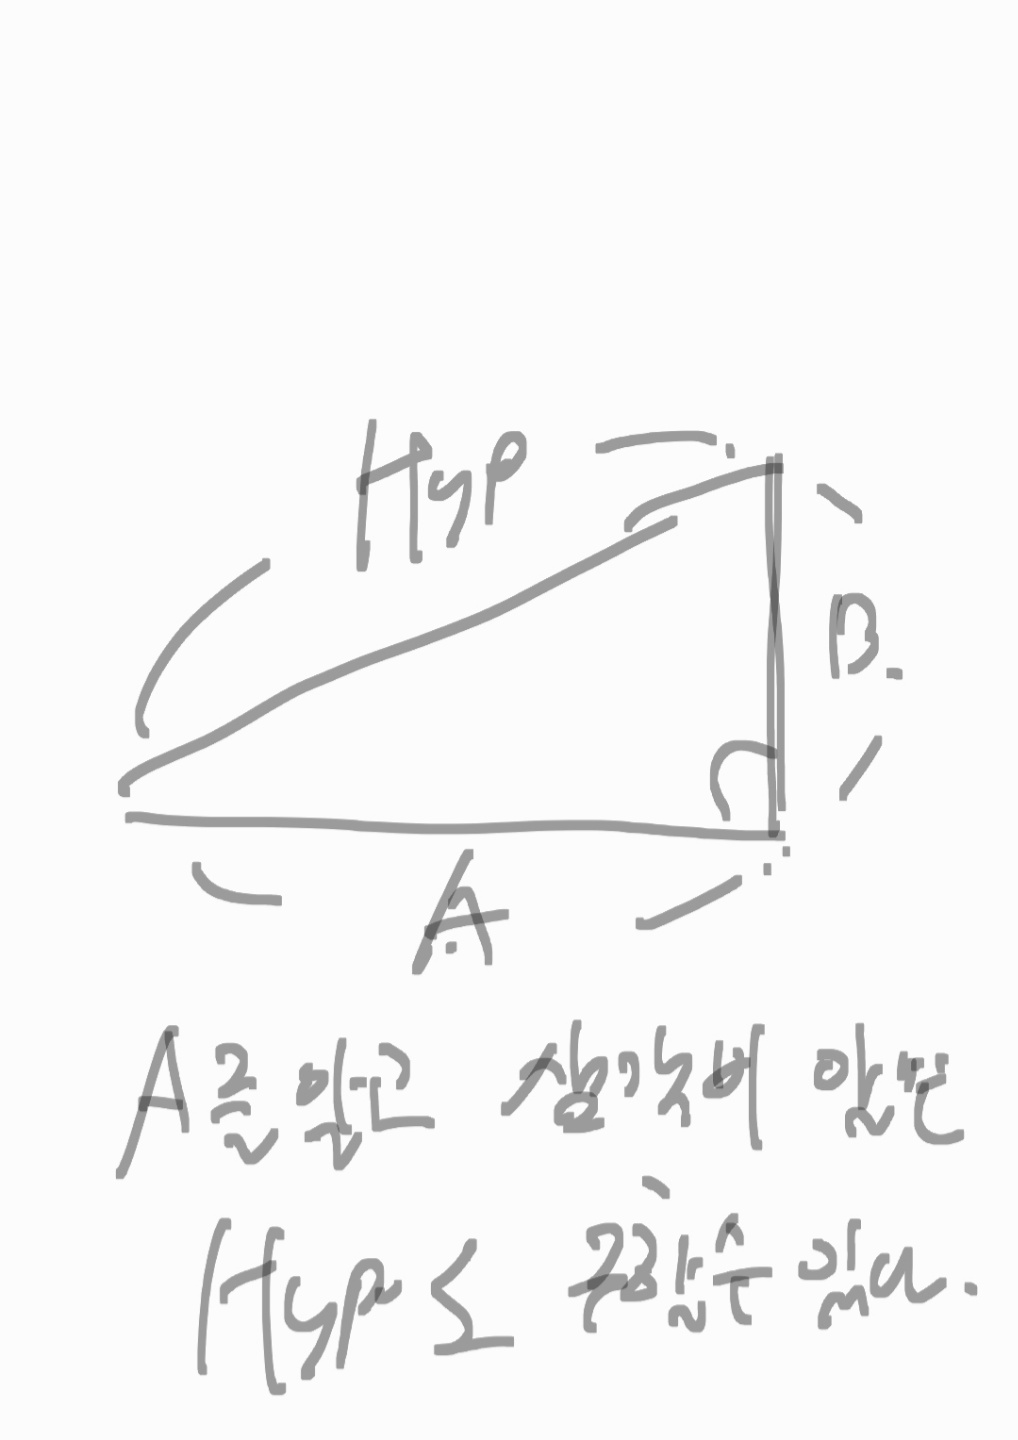 Hyp
B.
A
A를 알고 삼각비 알면
Hyp도 구할 수 있다.